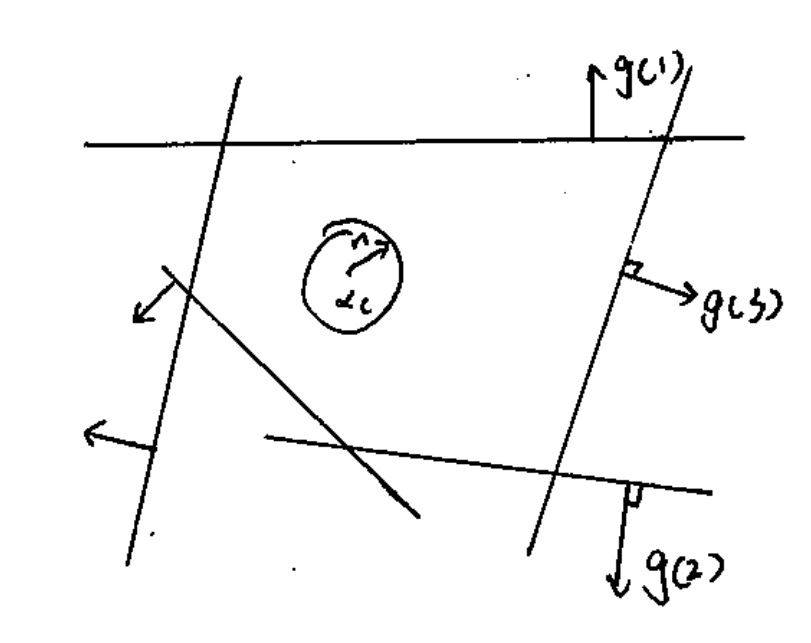 g(1)
r
xc
g(3)
g(2)